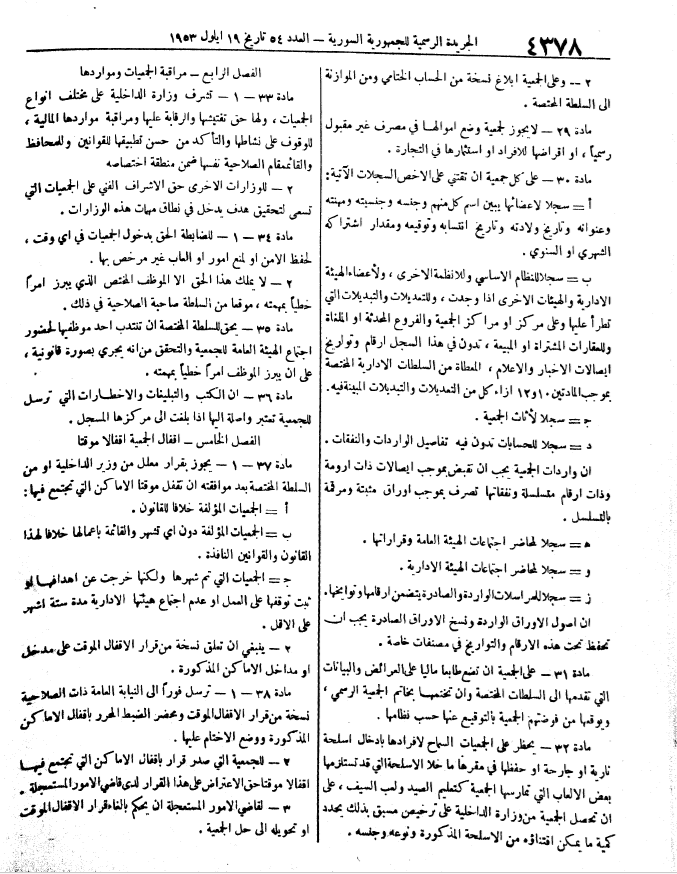 ٤٣٧٨
الجريدة الرسمية للجمهورية السورية – العدد ٥٤ تاريخ ١٩ ايلول ١٩٥٣
٢ – وعلى الجمعية ابلاغ نسخة من الحساب الختامي ومن الموازنة
الى السلطة المختصة .
مادة ٢٩ – لايجوز لجمعية وضع اموالها في مصرف غير مقبول
رسمياً ، او اقراضها للافراد او استثمارها في التجارة .
مادة ٣٠ – على كل جمعية ان تقتني على الاخص السجلات الآتية :
أ = سجلا لاعضائها يبين اسم كل منهم وجنسه وجنسيته ومهنته
وعنوانه وتاريخ ولادته وتاريخ انتسابه وتوقيعه ومقدار اشتراكه
الشهري او السنوي .
ب = سجلا للنظام الاساسي وللانظمة الاخرى ، ولأعضاء الهيئة
الادارية والهيئات الاخرى اذا وجدت ، وللتعديلات والتبديلات التي
تطرأ عليها وعلى مركز او مراكز الجمعية والفروع المحدثة او الملغاة
وللعقارات المشتراة او المبيعة ، تدون في هذا السجل ارقام وتواريخ
ايصالات الاخبار والاعلام ، المعطاة من السلطات الادارية المختصة
بموجب المادتين ١٠ و ١٢ ازاء كل من التعديلات والتبديلات المبينة فيه .
ج = سجلا لأثاث الجمعية .
د = سجلا للحسابات تدون فيه تفاصيل الواردات والنفقات .
ان واردات الجمعية يجب ان تقبض بموجب ايصالات ذات ارومة
وذات ارقام متسلسلة ونفقاتها تصرف بموجب اوراق مثبتة ومرقمة
بالتسلسل .
ه = سجلا لمحاضر اجتماعات الهيئة العامة وقراراتها .
و = سجلا لمحاضر اجتماعات الهيئة الادارية .
ز = سجلا للمراسلات الواردة والصادرة يتضمن ارقامها وتواريخها .
ان اصول الاوراق الواردة ونسخ الاوراق الصادرة يجب ان
تحفظ تحت هذه الارقام والتواريخ في مصنفات خاصة .
مادة ٣١ – على الجمعية ان تضع طابعا ماليا على العرائض والبيانات
التي تقدمها الى السلطات المختصة وان تختمها بخاتم الجمعية الرسمي ،
ويوقعها من فوضتهم الجمعية بالتوقيع عنها حسب نظامها .
مادة ٣٢ – يحظر على الجمعيات السماح لافرادها بادخال اسلحة
نارية او جارحة او حفظها في مقرها ما خلا الاسلحة التي قد تستلزمها
بعض الالعاب التي تمارسها الجمعية كتعليم الصيد ولعب السيف ، على
ان تحصل الجمعية من وزارة الداخلية على ترخيص مسبق بذلك يحدد
كمية ما يمكن اقتناؤه من الاسلحة المذكورة ونوعه وجنسه .
الفصل الرابع – مراقبة الجمعيات ومواردها
مادة ٣٣ – ١ – تشرف وزارة الداخلية على مختلف انواع
الجمعيات ، ولها حق تفتيشها والرقابة عليها ومراقبة مواردها المالية ،
للوقوف على نشاطها والتأكد من حسن تطبيقها للقوانين وللمحافظ
والقائمقام الصلاحية نفسها ضمن منطقة اختصاصه
٢ – للوزارات الاخرى حق الاشراف الفني على الجمعيات التي
تسعى لتحقيق هدف يدخل في نطاق مهمات هذه الوزارات .
مادة ٣٤ – ١ – للضابطة الحق بدخول الجمعيات في اي وقت ،
لحفظ الامن او لمنع امور او العاب غير مرخص بها .
٢ – لا يملك هذا الحق الا الموظف المختص الذي يبرز امراً
خطياً بمهمته ، موقعا من السلطة صاحبة الصلاحية في ذلك .
مادة ٣٥ – يحق للسلطة المختصة ان تنتدب احد موظفيها لحضور
اجتماع الهيئة العامة للجمعية والتحقق من انه يجري بصورة قانونية ،
على ان يبرز الموظف امراً خطياً بمهمته .
مادة ٣٦ – ان الكتب والتبليغات والاخطارات التي ترسل
للجمعية تعتبر واصلة اليها اذا بلغت الى مركزها المسجل .
الفصل الخامس – اقفال الجمعية اقفالا موقتا
مادة ٣٧ – ١ – يجوز بقرار معلل من وزير الداخلية او من
السلطة المختصة بعد موافقته ان تقفل موقتا الاماكن التي تجتمع فيها :
أ = الجمعيات المؤلفة خلافا للقانون .
ب = الجمعيات المؤلفة دون اي تشهر والقائمة باعمالها خلافا لهذا
القانون والقوانين النافذة .
ج = الجمعيات التي تم شهرها ولكنها خرجت عن اهدافها او
ثبت توقفها على العمل او عدم اجتماع هيئتها الادارية مدة ستة اشهر
على الاقل .
٢ – ينبغي ان تعلق نسخة من قرار الاقفال الموقت على مدخل
او مداخل الاماكن المذكورة .
مادة ٣٨ – ١ – ترسل فوراً الى النيابة العامة ذات الصلاحية
نسخة من قرار الاقفال الموقت ومحضر الضبط المحرر باقفال الاماكن
المذكورة ووضع الاختام عليها .
٢ – للجمعية التي صدر قرار باقفال الاماكن التي تجتمع فيها
اقفالا موقتا حق الاعتراض على هذا القرار لدى قاضي الامور المستعجلة .
٣ – لقاضي الامور المستعجلة ان يحكم بالغاء قرار الاقفال الموقت
او تحويله الى حل الجمعية .